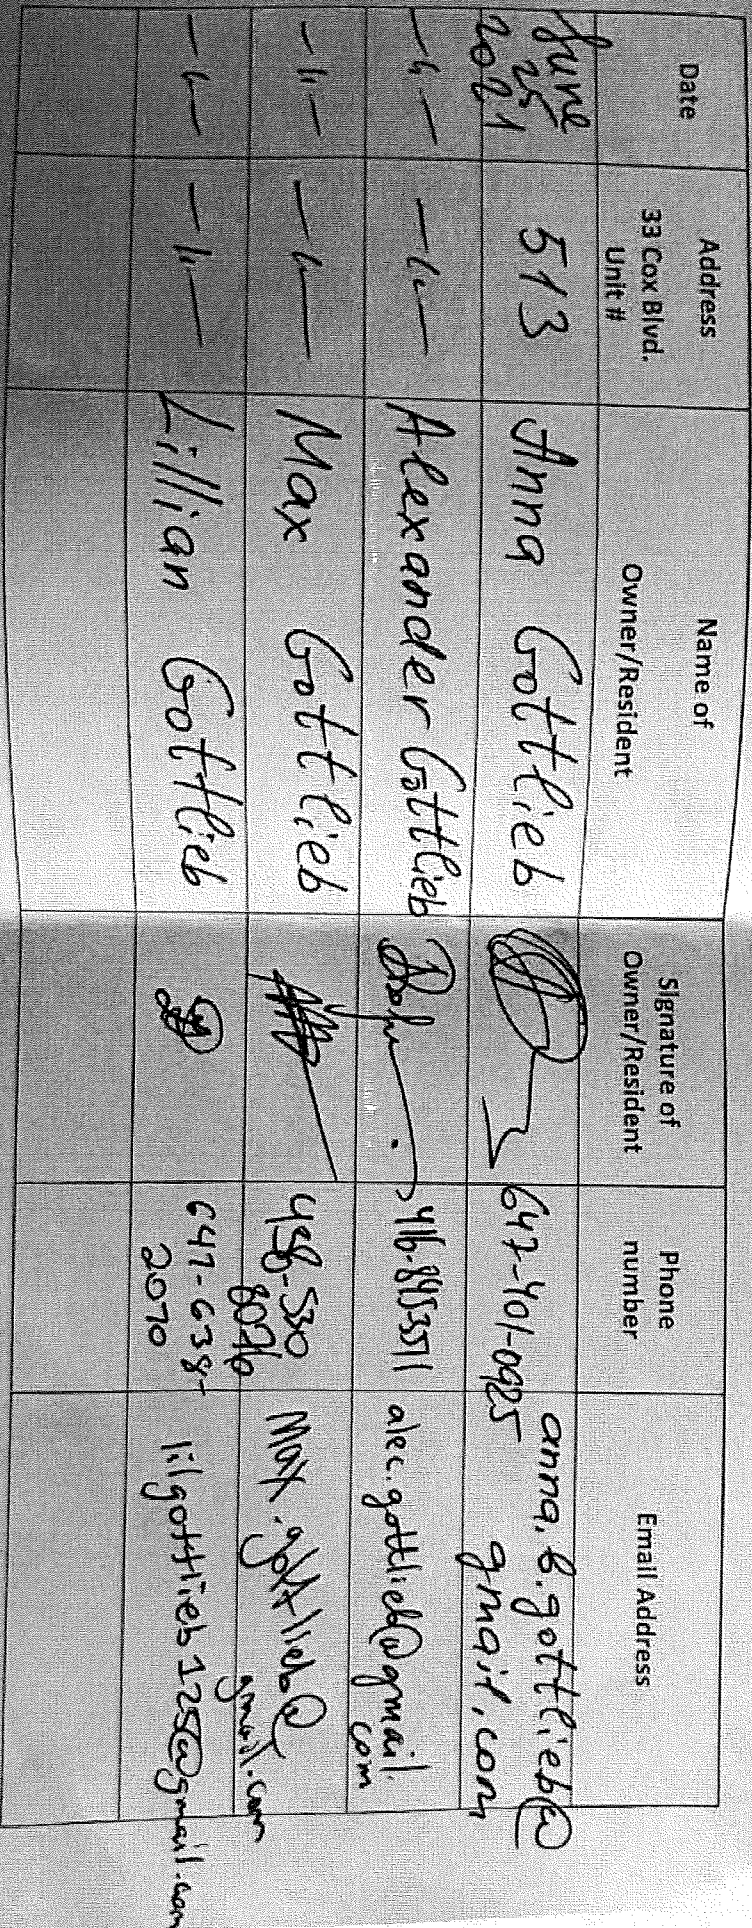 Date
Address
33 Cox Blvd.
Unit #
Name of
Owner/Resident
Signature of
Owner/Resident
Phone
number
Email Address
June
25
2021
513
Anna Gottlieb
647-401-0925
anna.b.gottlieb@
gmail.com
-〃-
-〃-
Alexander Gottlieb
416-8453511
alec.gottlieb@gmail.
com
-〃-
-〃-
Max Gottlieb
Max.gottlieb@
gmail.com
-〃-
-〃-
Lillian Gottlieb
647-638-
2070
lilgottlieb125@gmail.com